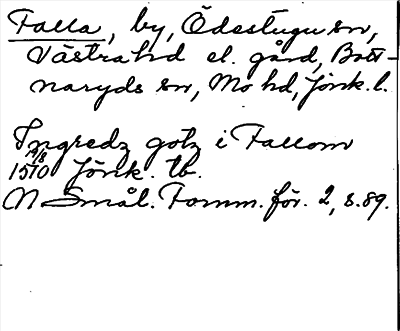 Falla, by, Ödestugu sn,
Västra hd el. gård, Bott-
naryds sn, Mo hd, Jönk. l.
Ingredz gotz i Fallom
1510 Jönk. tb.
N Smål. Fornm. för. 2, s. 89.